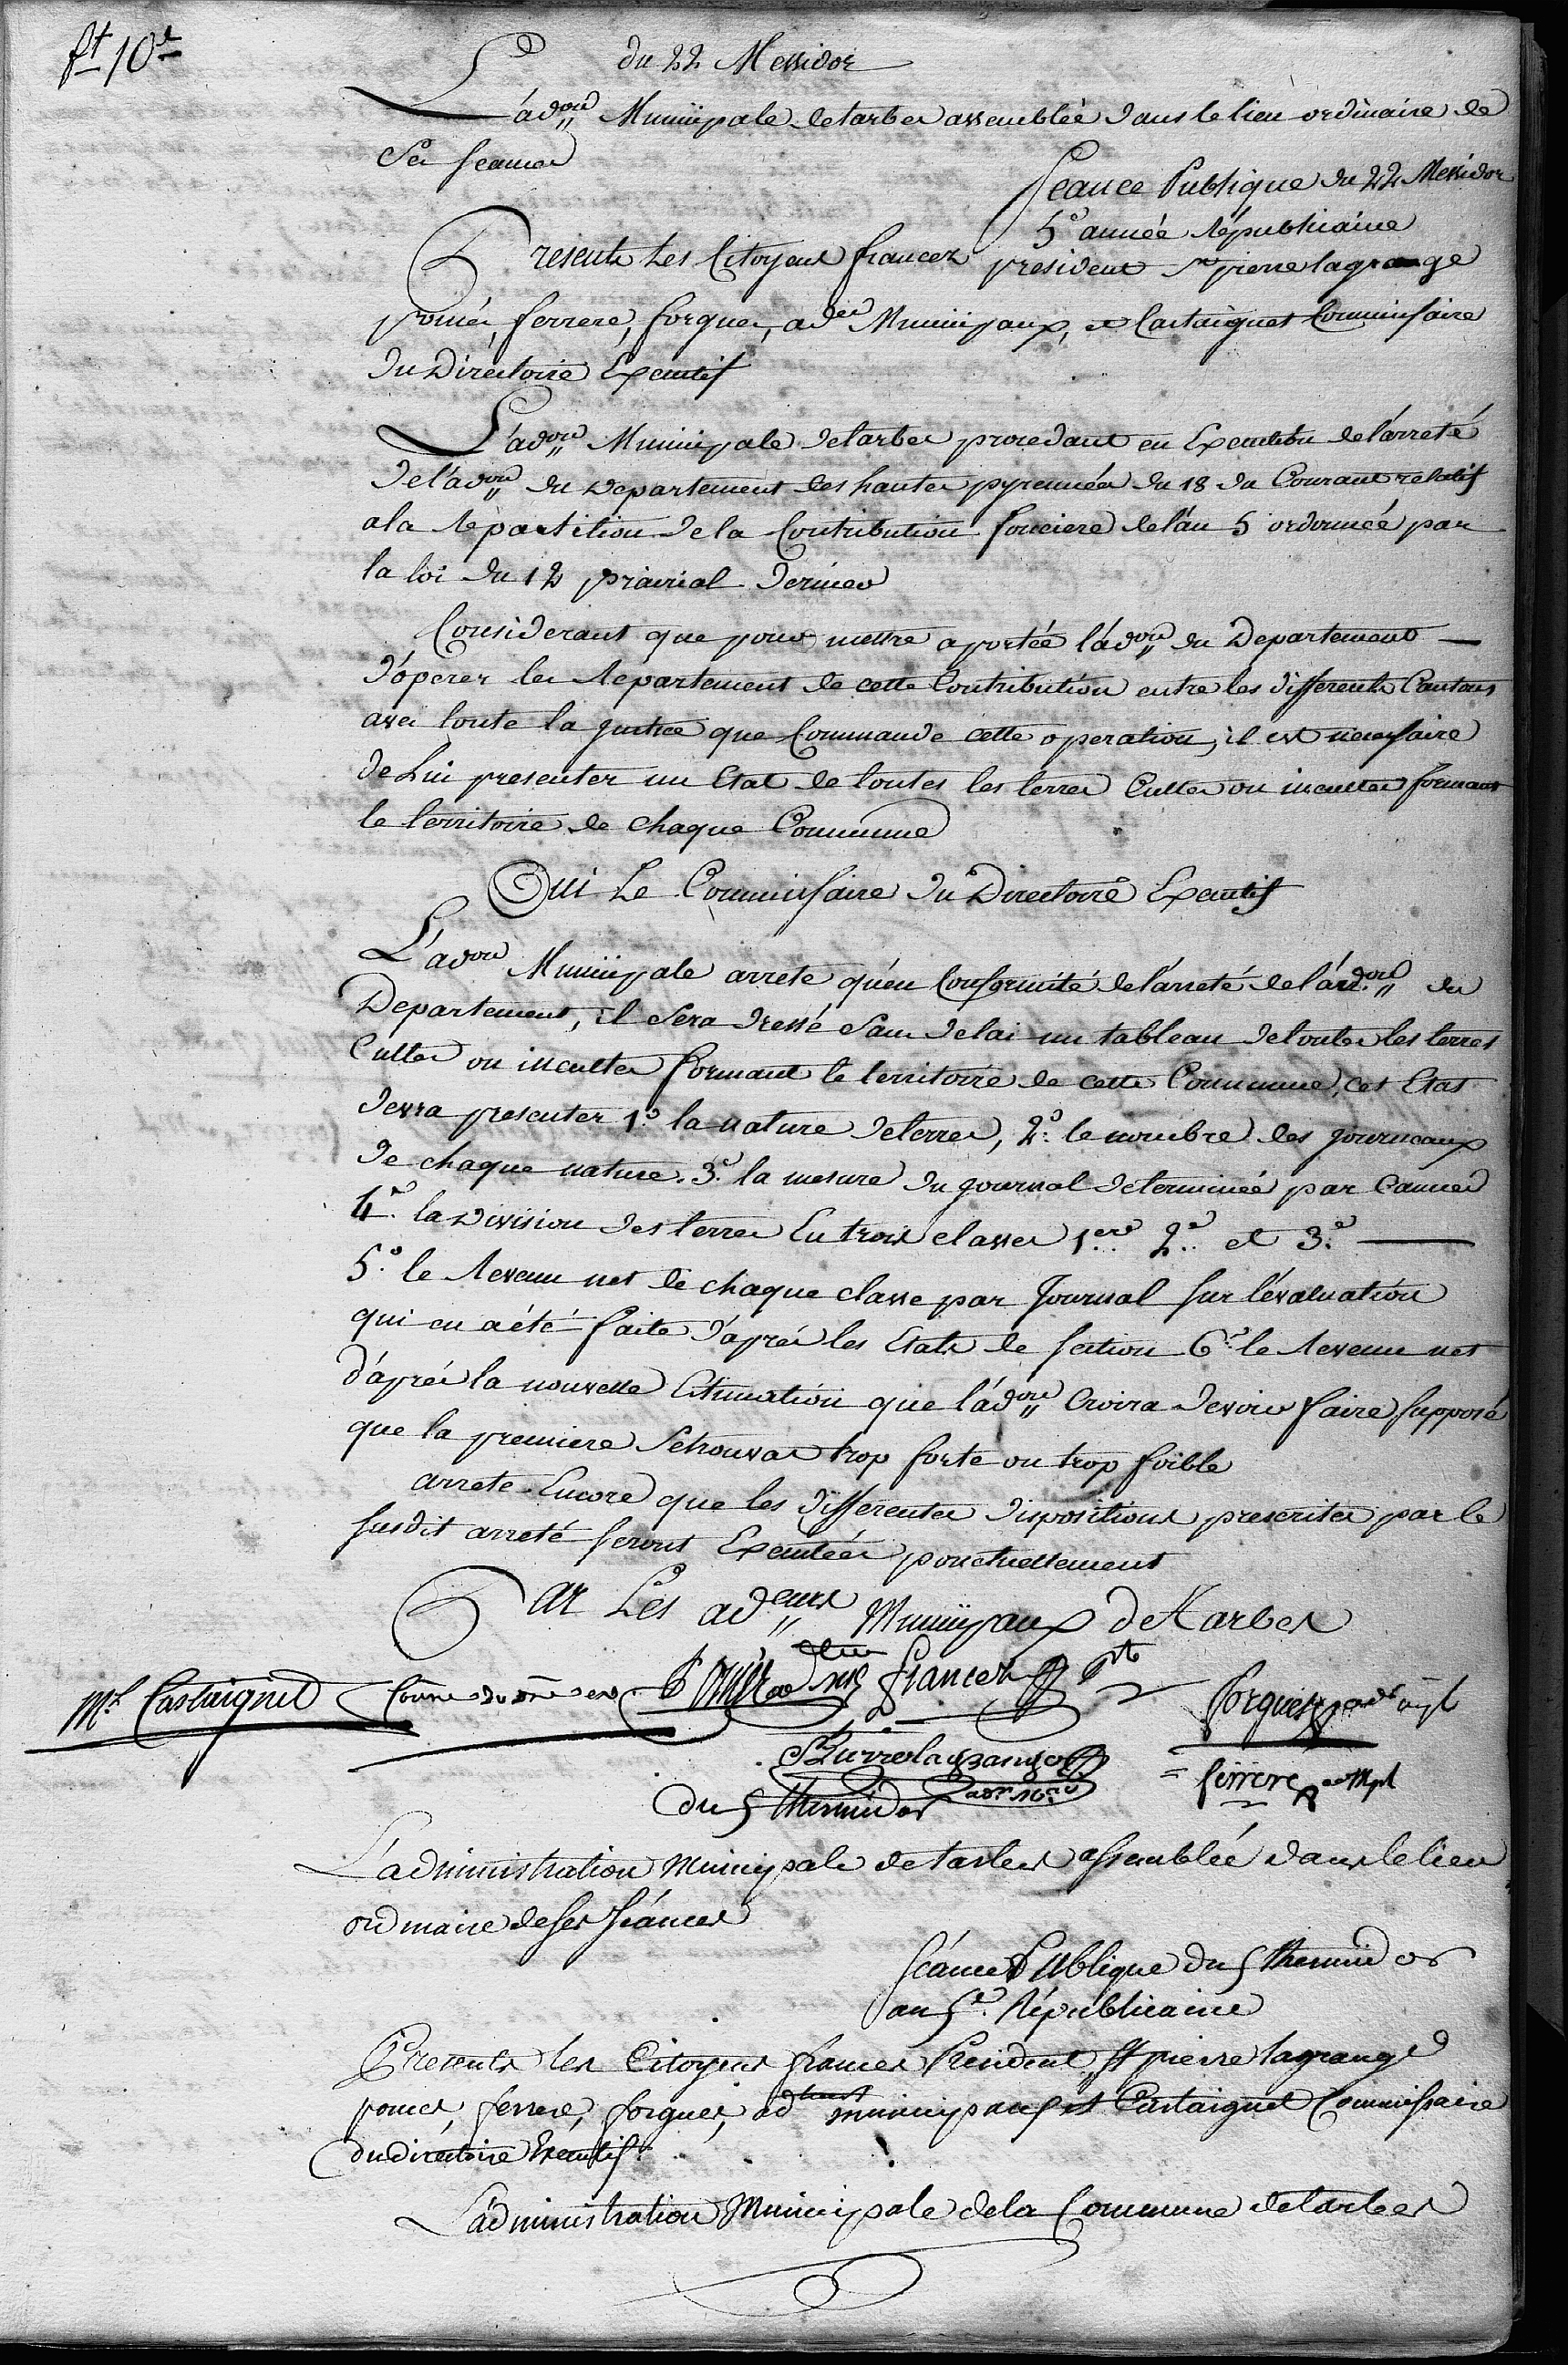 ft 10e
du 22 Messidor
L'adon Municipale de tarbes assemblée dans le lieu ordinaire de
Ses seances
Seance Publique du 22 Messidor
5e année républicaine
Presents Les Citoyens francez president St pierre lagrange
pomés, ferrere, forgues, adrs Municipaux, et Castaignet Commissaire
du Directoire Executif
L'adon Municipale de tarbes procedant en Execution de l'arreté
de l'adon du Departement des hautes pyrennées du 18 du Courant relatif
a la répartition de la Contribution fonciere de l'an 5 ordonnée par
la loi du 12 prairial dernier
Considerant que pour mettre a portée l'adon du Departement
d'opérer les répartement de cette Contribution entre les differents Cantons
avec toute la justice que Commande cette operation, il est necessaire
de Lui presenter un Etat de toutes les terres Cultes ou incultes formant
le territoire de chaque Commune
Oui Le Commissaire du Directoire Executif
L'adon Municipale arrete qu'en Conformité de l'arreté de l'adon du
Departement, il Sera dressé Sans delai un tableau de toutes les terres
Cultes ou incultes formant le territoire de cette Commune, cet Etat
devra presenter 1o. la nature de terres, 2o. le nombre des journeaux
de chaque nature. 3o. la mesure du journal determinée par Cannes
4o. la Division des terres En trois classes 1ere 2e et 3e
5o. le revenu net de chaque classe par Journal sur l'évaluation
qui en a été faite d'aprés les Etats de section 6o. le revenu net
d'aprés la nouvelle Estimation que l'adon Croira devoir faire, supposé
que la premiere Se trouvat trop forte ou trop foible
arrete Encore que les differentes dispositions prescrites par le
susdit arreté seront Executées ponctuellement
Par Les adeurs Municipaux de Tarbes
Mel Castaignet Comre du dre ex Pomiés francez pt
forgues adr mpl
St Pierre lagrange
ferrere ad Mpl
du 5 thermidor
L'administration municipale de tarbes assemblée dans le lieu
ordinaire de ses séances
séance Publique du 5 thermidor
an 5e. Républicaine
Presents les Citoyens francez President, St pierre lagrange
pomés, ferrere, forgues, ad municipaux et Castaignet Commissaire
du directoire Executif
L'administration Municipale de la Commune de tarbes